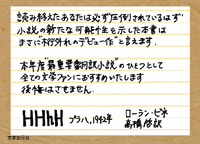 読み終えたあなたは必ず圧倒されているはず
小説の新たな可能性を示した本書は
まさに"桁外れのデビュー作"と言えます.
本年度"最重要翻訳小説"のひとつとして
全ての文学ファンにおすすめいたします
後悔はさせません.
HHhH プラハ,1942年
ローラン・ビネ
高橋啓訳
東京創元社